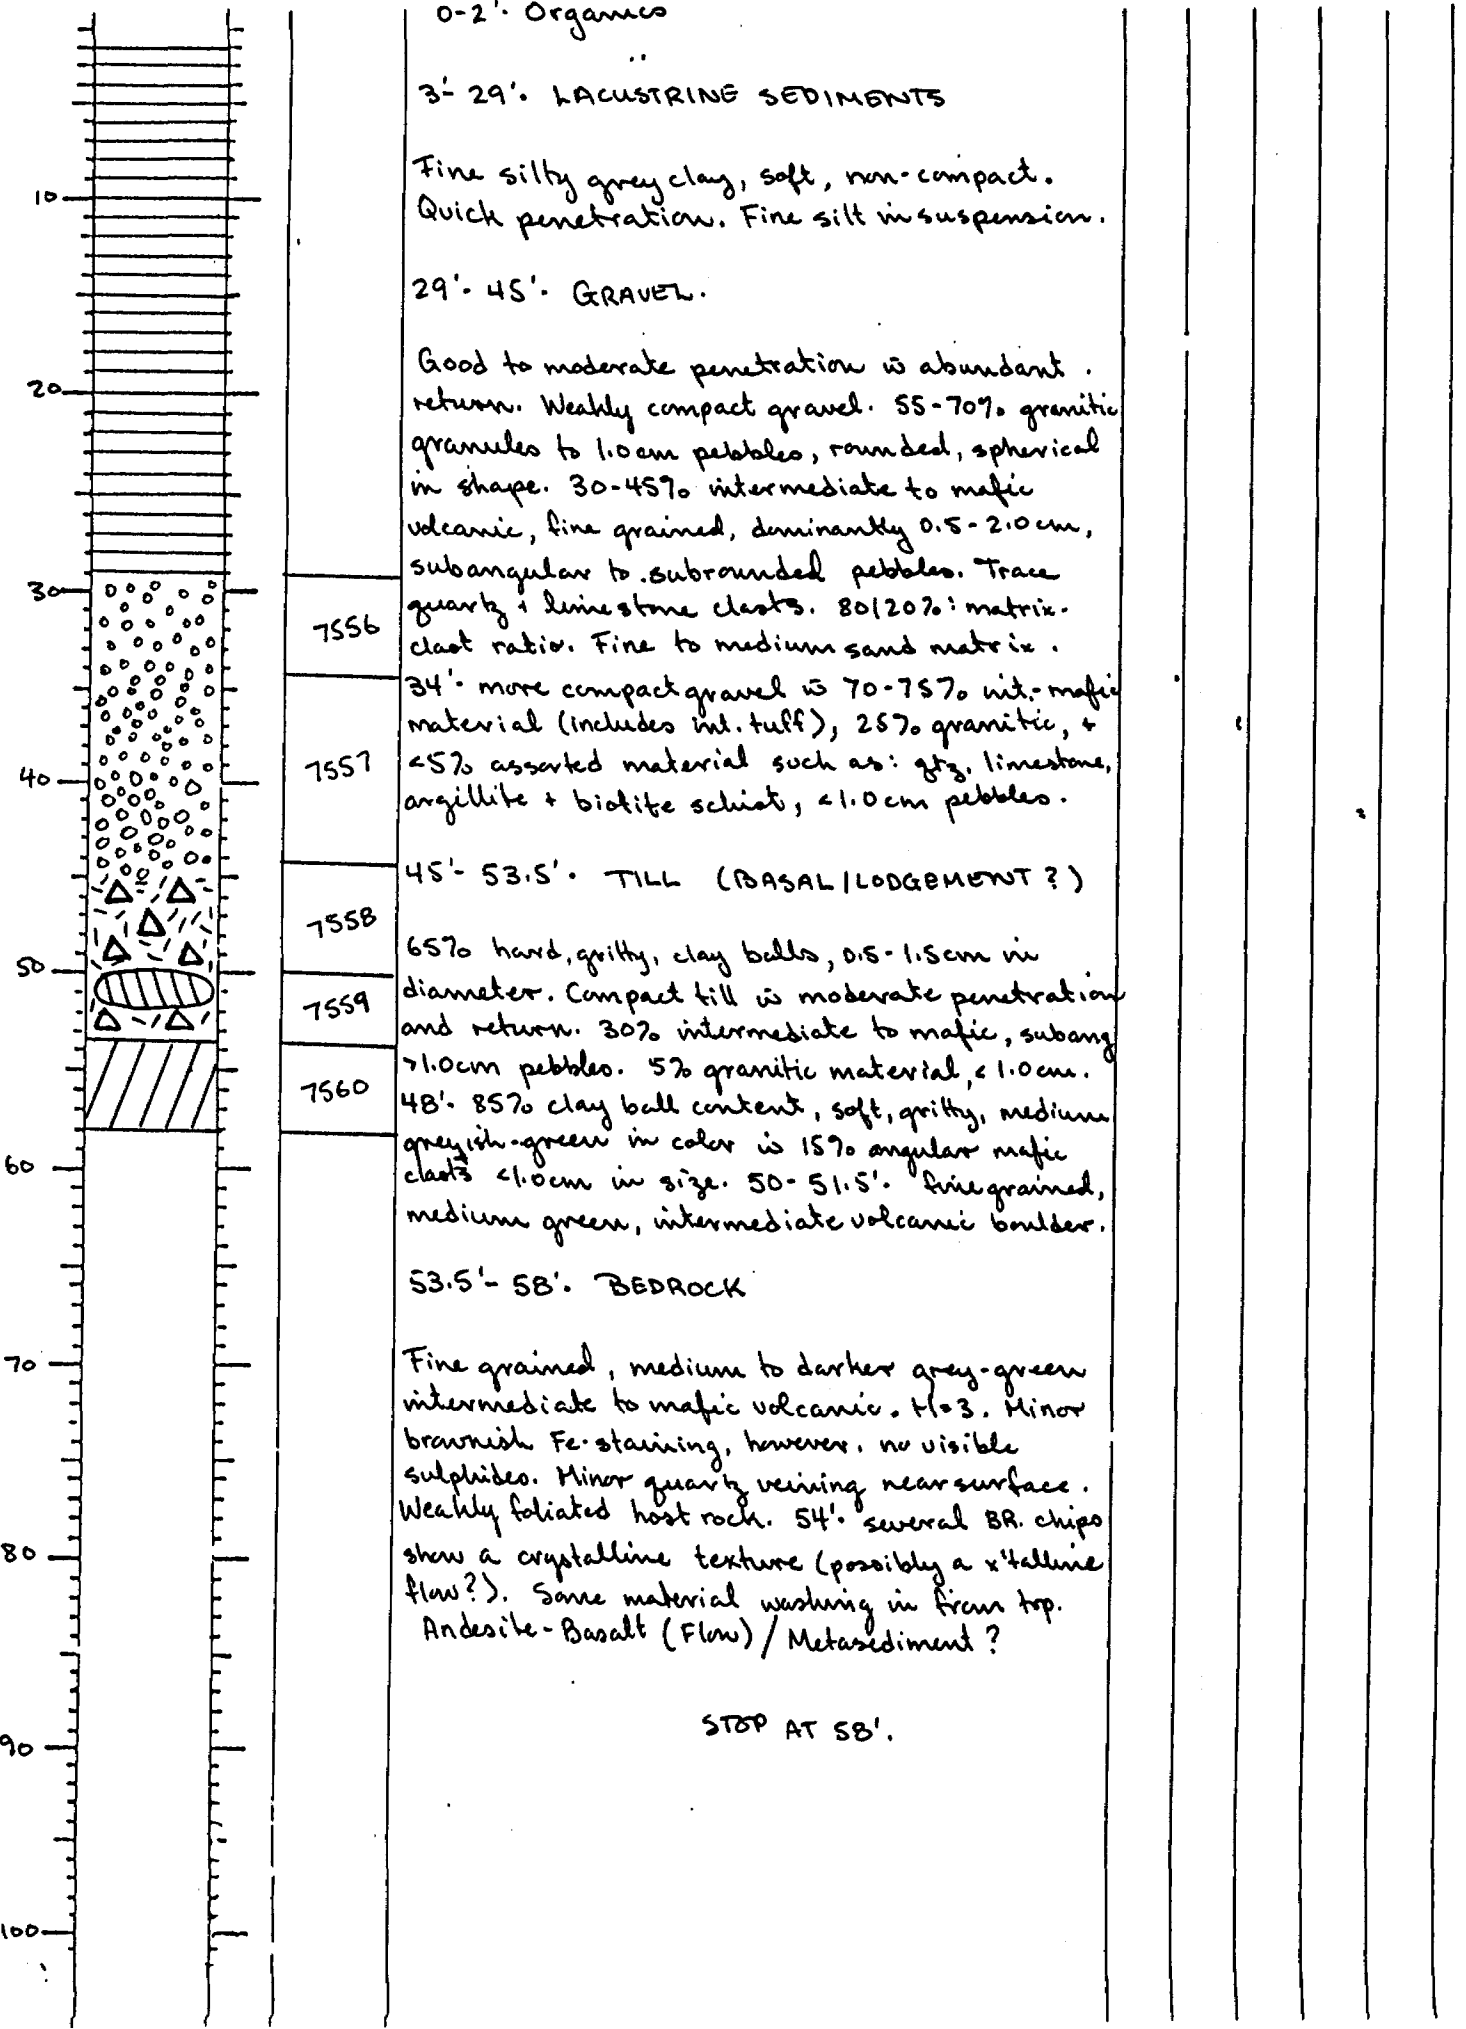 0-2'. Organics
3'- 29'. LACUSTRINE SEDIMENTS
Fine silty grey clay, soft, non-compact.
10
Quick penetration. Fine silt in suspension.
29'- 45'. GRAVEL.
Good to moderate penetration w̄ abundant
20
return. Weakly compact gravel. 55-70% granitic
granules to 1.0cm pebbles, rounded, spherical
in shape. 30-45% intermediate to mafic
volcanic, fine grained, dominantly 0.5-2.0cm,
subangular to subrounded pebbles. Trace
30
quartz + limestone clasts. 80/20%: matrix-
7556
clast ratio. Fine to medium sand matrix.
34'- more compact gravel w̄ 70-75% int.-mafic
material (includes int. tuff), 25% granitic, +
7557
<5% assorted material such as: qtz, limestone,
40
argillite + biotite schist, <1.0cm pebbles.
45'- 53.5'. TILL (BASAL/LODGEMENT?)
7558
65% hard, gritty, clay balls, 0.5-1.5cm in
50
diameter. Compact till w̄ moderate penetration
7559
and return. 30% intermediate to mafic, subang
>1.0cm pebbles. 5% granitic material, <1.0cm.
7560
48'. 85% clay ball content, soft, gritty, medium
greyish-green in color w̄ 15% angular mafic
60
clasts <1.0cm in size. 50-51.5'. fine grained,
medium green, intermediate volcanic boulder.
53.5'- 58'. BEDROCK
70
Fine grained, medium to darker grey-green
intermediate to mafic volcanic. H=3. Minor
brownish Fe-staining, however, no visible
sulphides. Minor quartz veining near surface.
Weakly foliated host rock. 54'. several BR. chips
80
show a crystalline texture (possibly a x'talline
flow?). Some material washing in from top.
Andesite-Basalt (Flow) / Metasediment?
STOP AT 58'.
90
100